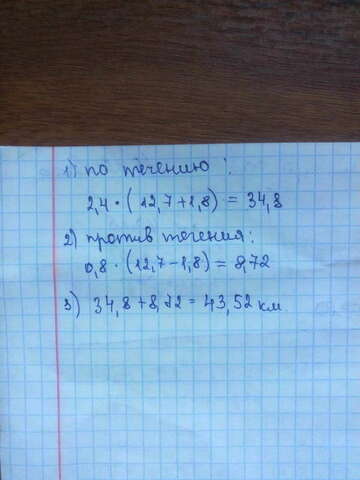 1) по течению:
2,4 · (12,7+1,8) = 34,8
2) против течения:
0,8 · (12,7-1,8) = 8,72
3) 34,8+8,72 = 43,52 км